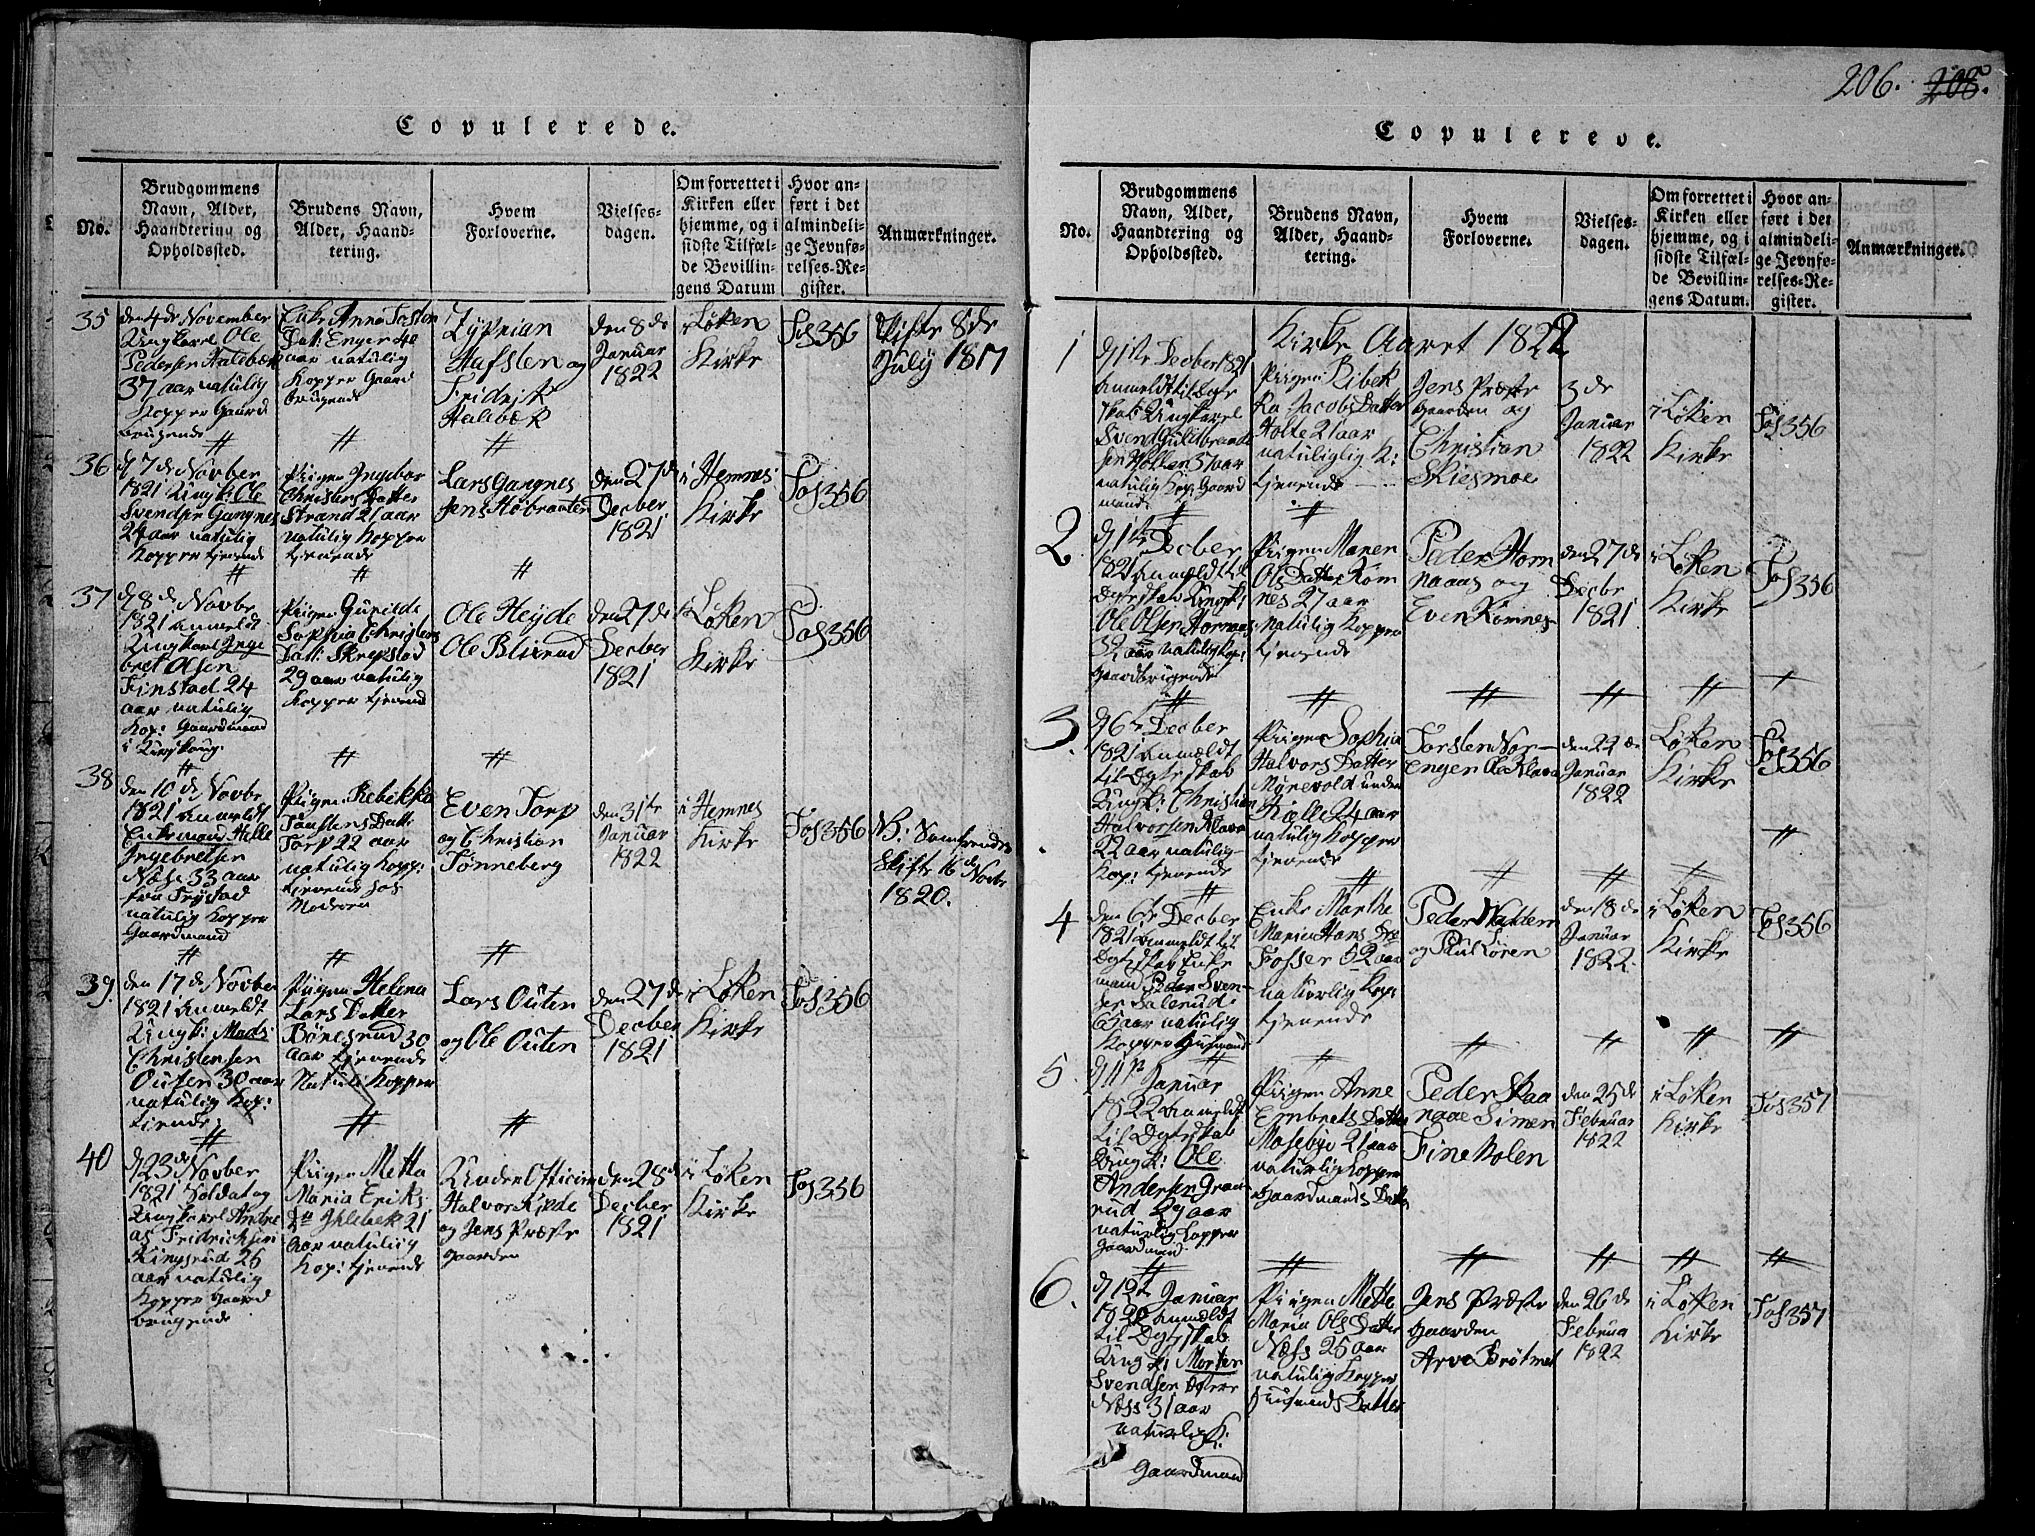 206. 208.
Copulerede.
No.
Brudgommens
Navn, Alder,
Haandtering og
Opholdssted.
Brudens Navn,
Alder, Haand-
tering.
Hvem
Forloverne.
Vielses-
dagen.
Om forrettet i
Kirken eller
hjemme, og i
sidste Tilfæl-
de Bevillin-
gens Datum
Hvor an-
ført i det
almindeli-
ge Jevnfø-
relses-Re-
gister.
Anmærkninger.
35
den 4de November
Ungkarl Ole
Pedersen Haldbæk
37 aar natulig
Kopper Gaard
brugende
Enke Anne
Datt: Enger 40
aar natulig
Kopper Gaard
brugende
Zyprian
Hafslen og
Fridrik
Halbæk
den 8de
Januar
1822
i Løken
Kirke
Fol 356
Skifte 8de
July 1817
36
d 7de Novber
1821 Ungk: Ole
Svendsen Gangnes
24 aar natulig
Kopper tjenende
Pigen Ingebor
Christens Datter
Strand 21 aar
natulig Kopper
tjenende
Lars Gangnes
Jens Høbraaten
den 27de
Decber
1821
i Hemnes
Kirke
Fol 356
37
d 8de Novbr
1821 Anmeldt
Ungkarl Inge
bret Olsen
Finstad 24
aar natulig
Kop: Gaardmand
i Urskoug
Pigen Gunilde
Sophia Christens
Datt: Skrepstad
29 aar natulig
Kopper tjenend
Ole Heyde
Ole Blixrud
den 27de
Decber
1821
i Løken
Kirke
Fol 356
38
den 10de Novbr
1821 Anmeldt
Enkemand Helle
Ingebretsen
Næse 33 aar
fra Trøstad
natulig Kopper
Gaardmand
Pigen Rebekka
Torstens Datt:
Torp 22 aar
natulig Kopp:
tjenende hos
Moderen
Even Torp
og Christian
Tønneberg
den 31te
Januar
1822
i Hemnes
Kirke
Fol 356
NB: Samfrende
Skifte 16de Novbr
1820.
39.
den 17de Novber
1821 Anmeldt
Ungk: Mads
Christensen
Outen 30 aar
natulig Kop:
tienende
Pigen Helena
Lars Datter
Bönesrud 30
aar tjenende
Natuli Kopper
Lars Outen
og Ole Outen
den 27de
Decber
1821
i Løken
Kirke
Fol 356
40
d 23de Novber
1821 Soldat og
Ungkarl Andre
as Fridrichsen
Kingsrud 26
aar natulig
Kopper Gaard
brugende
Pigen Metta
Maria Eriks
Dtr Ihlebek 21
Aar natulig
Kop: tjenende
Under Officier
Halvor Kinde
og Jens Præste
gaarden
den 28de
Decber
1821
i Løken
Kirke
Fol 356
Copulerede.
No.
Brudgommens
Navn, Alder,
Haandtering og
Opholdssted.
Brudens Navn,
Alder, Haand-
tering.
Hvem
Forloverne.
Vielses-
dagen.
Om forrettet i
Kirken eller
hjemme, og i
sidste Tilfæl-
de Bevillin-
gens Datum.
Hvor an-
ført i det
almindeli-
ge Jevnfø-
relses-Re-
gister.
Anmærkninger.
Kirke Aaret 1822
1
d 1ste Decber 1821
Anmeldt til Egte
skab Ungkarl
Svend Guldbrand
sen Holten 37 aar
natulig Kop: Gaard
mand
Pigen Ribek
ka Jacobs Datter
Holte 21 aar
natuliglig K:
tjenende
Jens Præste
gaarden og
Christian
Skiesmoe
3de
Januar
1822
i Løken
Kirke
Fol 356
2
d 1ste Decber
1821 Anmeldt til
Egteskab Ungk:
Ole Olsen Hornnæs
32 aar natulig Kop:
Gaardbrugende
Pigen Maren
Ols Datter Kom
nes 27 aar
natulig Kopper
tjenende
Peder Horn
naas og
Even Komnes
den 27de
Decbr
1821
i Løken
Kirke
Fol 356
3.
d 6te Decber
1821 Anmeldt
til Egteskab
Ungk: Christian
Halvorsen Klava
22 aar natulig
Kop: tjenende
Pigen Sophia
Halvors Datter
Myrevold under
Kielle 24 aar
natulig Kopper
tjenende
Torsten Nor-
enger Ole Klava
den 22de
Januar
1822
Løken
Kirke
Fol 356
4
den 6te Decber
1821 Anmeldt til
Egteskab Enke
mand Peder Sven-
sen Dalerud
65 aar natulig
Kopper Husmand
Enke Marthe
Maria Hans Dtr
Fosser 52 aar
naturlig Kop:
tjenende
Peder Nattem
og Paul Kören
den 18de
Januar
1822
i Løken
Kirke
Fol 356
5.
d 11te Januar
1822 Anmeldt
til Egteskab
Ungk: Ole
Andersen Gran
rud 29 aar
naturlig Kopper
Gaardmand
Pigen Anne
Embrets Datter
Mosebye 21 aar
naturlig Kopper
Gaardmands Datter
Peder Skaa
naae Simen
Fineholen
den 25de
Februar
1822
i Løken
Kirke
Fol 357
6.
d 12te Januar
1822 Anmeldt
til Egteskab
Ungk: Morten
Svendsen Østre
Næss 31 aar
naturlig K:
Gaardmand
Pigen Mette
Maria Ols Datter
Næss 25 aar
natulig Kopper
Husmands Datter
Jens Præste
gaarden
Arve Brötnet
den 26de
Februa
1822
i Løken
Kirke
Fol 357